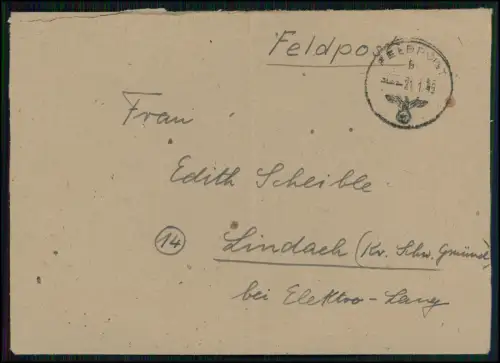 Feldpost
FELDPOST
b
21.1.45
Frau
Edith Scheible
14
Lindach (Kr. Schw. Gmünd)
bei Elektro-Lang